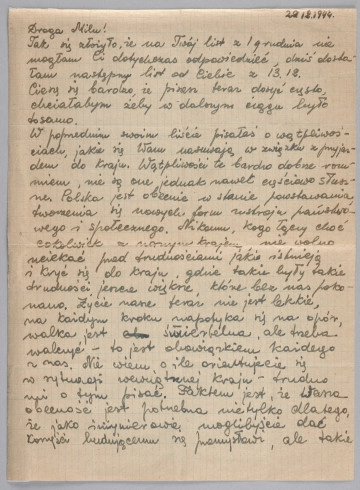 28.12.1944.
Droga Milu!
Tak się złożyło, że na Twój list z 1 grudnia nie
mogłam Ci dotychczas odpowiedzieć, dziś dosta-
łam następny list od Ciebie z 13.12.
Cieszę się bardzo, że piszesz teraz dosyć często,
chciałabym żeby w dalszym ciągu było
tosamo.
W poprzednim swoim liście pisałaś o wątpliwoś-
ciach, jakie się Wam nasuwają w związku z przyjaz-
dem do kraju. Wątpliwości te bardzo dobrze rozu-
miem, nie są one jednak nawet częściowo słusz-
ne. Polska jest obecnie w stanie powstawania,
tworzenia się nowych form ustroju państwo-
wego i społecznego. Nikomu, kogo łączy choć
cokolwiek z naszym krajem, nie wolno
uciekać przed trudnościami jakie istnieją
i kryć się do kraju, gdzie takie były takie
trudności jeszcze większe, które bez nas poko-
nano. Życie nasze teraz nie jest lekkie,
na każdym kroku napotyka się na opór,
walka jest śmiertelna, ale trzeba
walczyć – to jest obowiązkiem każdego
z nas. Nie wiem, o ile orientujecie się
w sytuacji wewnątrz kraju – trudno
mi o tym pisać. Faktem jest, że Wasza
obecność jest potrzebna nietylko dlatego,
że jako inżynierowie, moglibyście dać
budującemu się przemysłowi, ale także